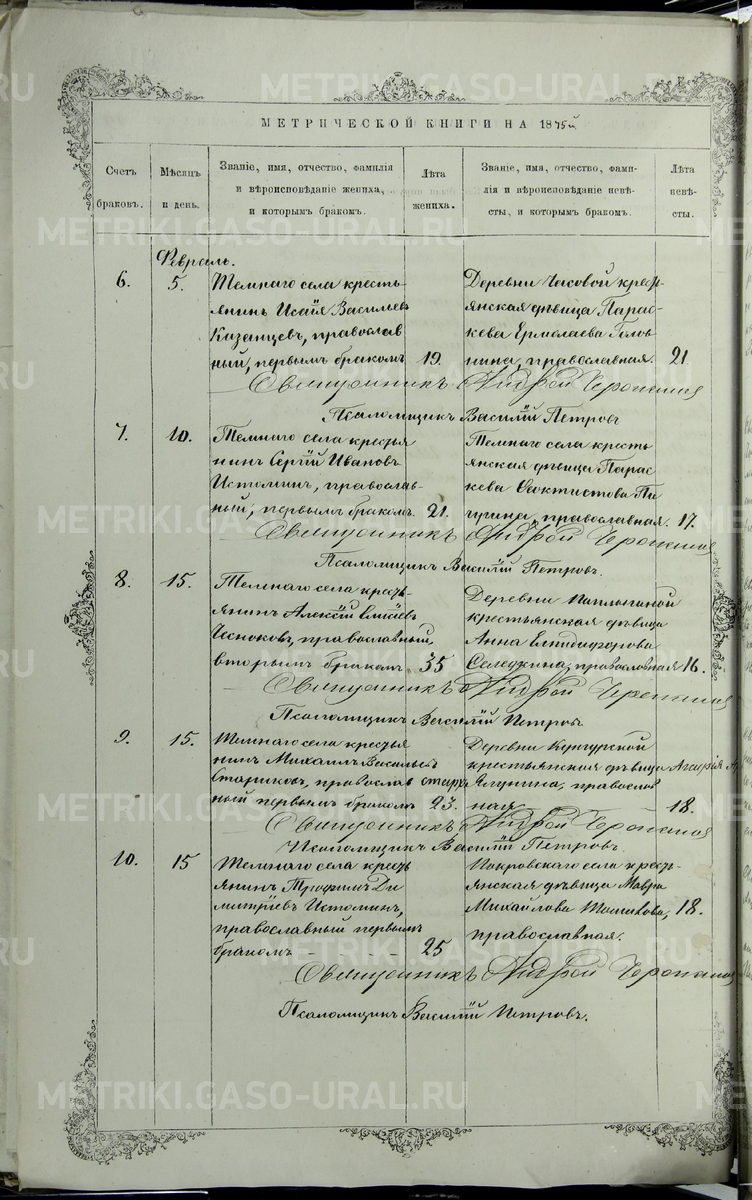 METRIKI.GASO-URAL.RU
МЕТРИЧЕСКОЙ КНИГИ НА 1875й
Счетъ браковъ.
Мѣсяцъ и день.
Званіе, имя, отчество, фамилія
и вѣроисповѣданіе жениха,
и которымъ бракомъ.
Лѣта жениха.
Званіе, имя, отчество, фами-
лія и вѣроисповѣданіе невѣ-
сты, и которымъ бракомъ.
Лѣта невѣ-
сты.
Февраль.
6. 5.
Темнаго села кресть-
янинъ Исаія Васильевъ
Казанцевъ, православ
ный, первымъ бракомъ 19.
Деревни Часовой крест-
янская дѣвица Парас-
кева Ермолаева Голов
нина, православная. 21.
Священникъ Андрей
Псаломщикъ Василій Петровъ
7. 10.
Темнаго села крестья
нинъ Сергій Ивановъ
Истоминъ, православ-
ный, первымъ бракомъ. 21.
Темнаго села кресть
янская дѣвица Парас
кева Феоктистова
православная. 17.
Священникъ Андрей
Псаломщикъ Василій Петровъ.
8. 15.
Темнаго села кресть-
янинъ Алексій
Чесноковъ, православный,
вторымъ бракомъ. 35
Деревни
крестьянская дѣвица
Анна Елпидифорова
православная 16.
Священникъ Андрей
Псаломщикъ Василій Петровъ
9. 15.
Темнаго села крестья
нинъ Михаилъ Васильевъ
Стариковъ, православ
ный первымъ бракомъ 23.
Деревни
крестьянская дѣвица
Ялунина, православ
ная 18.
Священникъ Андрей
Псаломщикъ Василій Петровъ.
10. 15
Темнаго села кресть
янинъ Трофимъ Ди
митріевъ Истоминъ,
православный первымъ
бракомъ 25
Покровскаго села кресть-
янская дѣвица Мавра
Михайлова 18.
православная.
Священникъ Андрей
Псаломщикъ Василій Петровъ.